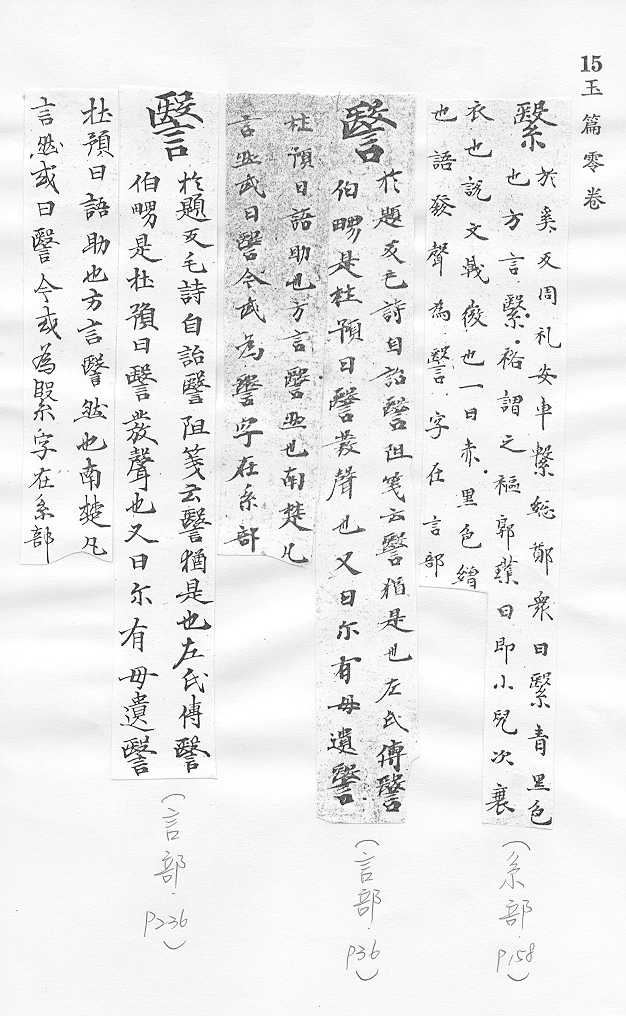 15玉篇零卷
繄
於奚反周礼安車繄緫鄭衆曰繄青黑色
也方言繄袼謂之襘郭璞曰即小兒次裹
衣也説文戟㣪也一曰赤黑色繒
也語發聲為瞖字在言部
(糸部.P158)
譼
於題反毛詩自詒譼阻箋云譼猶是也左氏傳譼
伯舅是杜預曰譼發聲也又曰尓有母遺譼
杜預曰語助也方言譼然也南楚凡
言然或曰譼今或為繄字在糸部
(言部.P36)
譼
於題反毛詩自詒譼阻箋云譼猶是也左氏傳譼
伯舅是杜預曰譼發聲也又曰尓有母遺譼
杜預曰語助也方言譼然也南楚凡
言然或曰譼今或為繄字在糸部
(言部.P236)